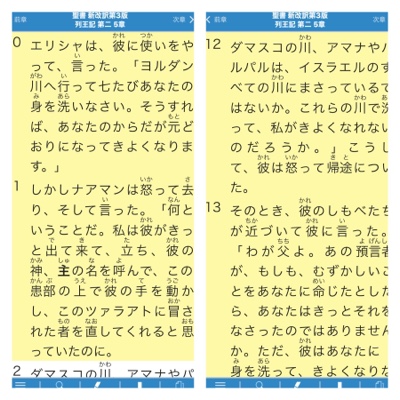 前章 聖書 新改訳第3版 次章
列王記 第二 5章
0 エリシャは、彼に使いをや
って、言った。「ヨルダン
川へ行って七たびあなたの
身を洗いなさい。そうすれ
ば、あなたのからだが元ど
おりになってきよくなりま
す。」
1 しかしナアマンは怒って去
り、そして言った。「何と
いうことだ。私は彼がきっ
と出て来て、立ち、彼の
神、主の名を呼んで、この
患部の上で彼の手を動か
し、このツァラアトに冒さ
れた者を直してくれると思
っていたのに。
2 ダマスコの川、アマナやパ
前章 聖書 新改訳第3版 次章
列王記 第二 5章
12 ダマスコの川、アマナやパ
ルパルは、イスラエルのす
べての川にまさっているで
はないか。これらの川で洗
って、私がきよくなれない
のだろうか。」こうし
て、彼は怒って帰途につい
た。
13 そのとき、彼のしもべたち
が近づいて彼に言った。
「わが父よ。あの預言者
が、もしも、むずかしいこ
とをあなたに命じたとした
ら、あなたはきっとそれを
なさったのではありません
か。ただ、彼はあなたに
身を洗って、きよくなりな